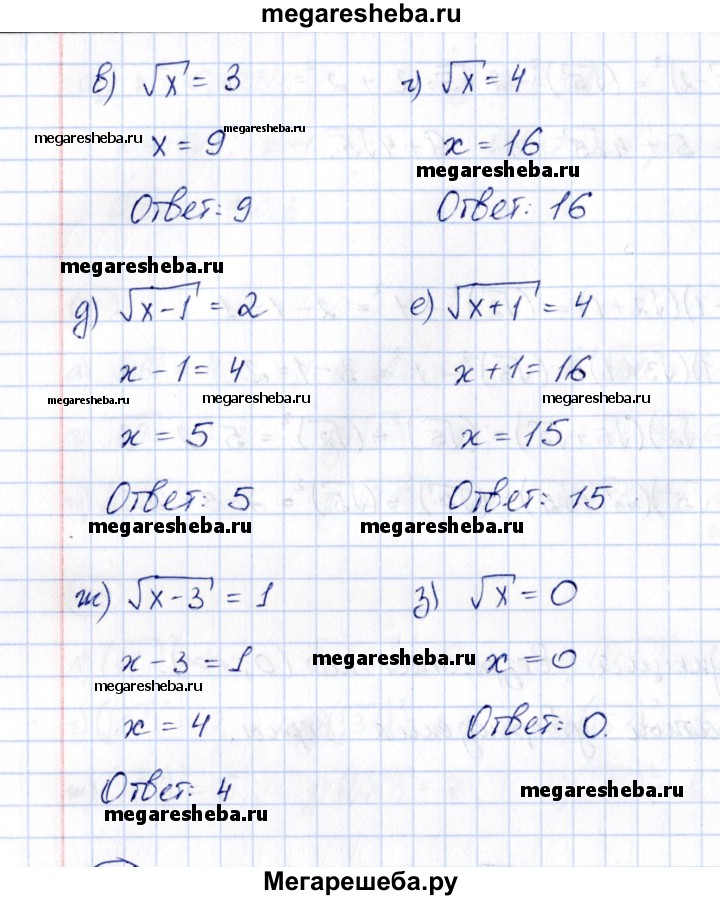 megaresheba.ru
в) √x = 3
г) √x = 4
megaresheba.ru x = 9 megaresheba.ru
x = 16
megaresheba.ru
Ответ: 9
Ответ: 16
megaresheba.ru
д) √x-1 = 2
е) √x+1 = 4
x - 1 = 4
x + 1 = 16
megaresheba.ru megaresheba.ru megaresheba.ru
x = 5
x = 15
Ответ: 5
Ответ: 15
megaresheba.ru megaresheba.ru
ж) √x-3 = 1
з) √x = 0
x - 3 = 1
megaresheba.ru x = 0
megaresheba.ru
x = 4
Ответ: 0.
Ответ: 4
megaresheba.ru megaresheba.ru
Мегарешеба.ру